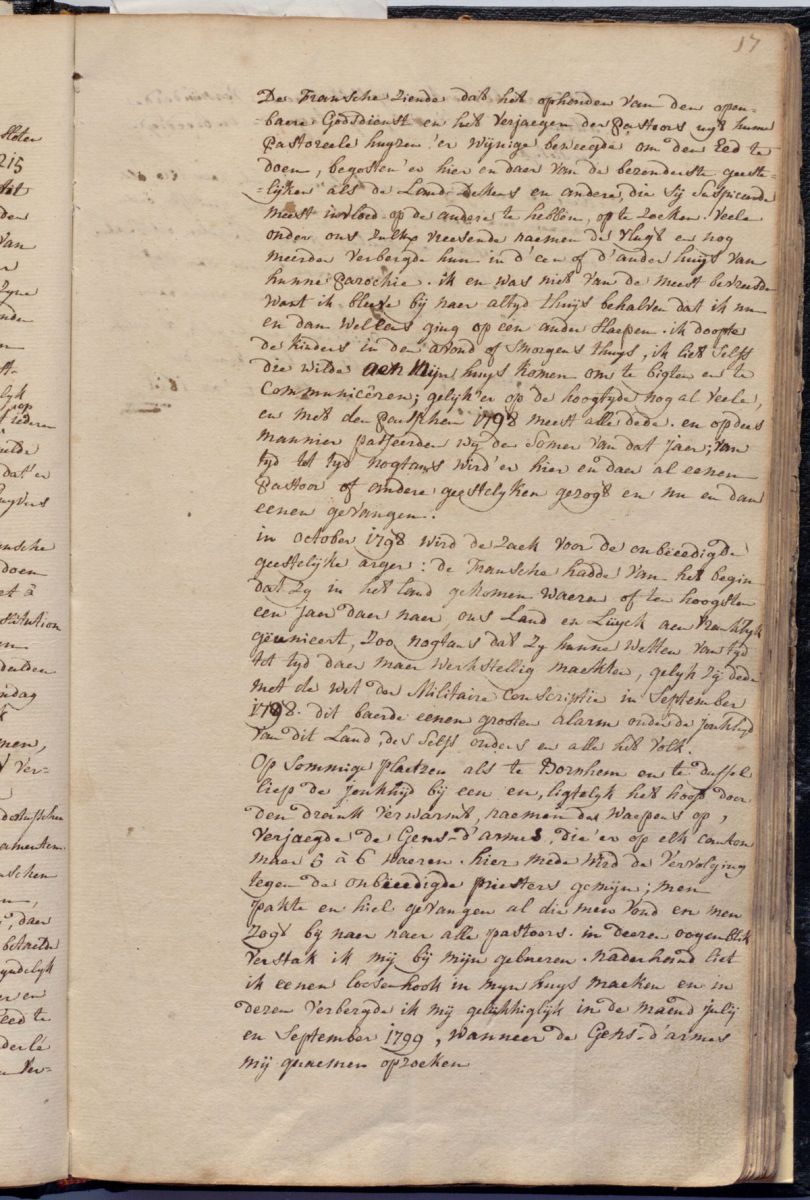 17
De Fransche ziende dat het ophouden van den open-
-baere Godsdienst en het verjaegen der Pastoors uyt hunne
Pastoreele huyzen er wijnige beweegde om den Eed te
doen, begosten er hier en daer van de bezonderste geeste-
-lijken als de Land-Dekens en andere, die sij suspiceerde
meest invloed op de andere te hebben, op te zoeken. Veele
onder ons zulkx vreesende naemen de vlugt en nog
meerder verbergde hun in d'een of d'ander huys van
hunne parochie. ik en was niet van de meest bevreesde
want ik bleeve bij naer altyd thuijs behalven dat ik nu
en dan wel eens ging op een ander slaepen. ik doopte
de kinders in den avond of smorgens thuys, ik liet self
die wilde aen mijn huys komen om te bigten en te
Communicêren; gelijk er op de hoogtyde nog al veele,
en met den paesschen 1798 meest alle dede. en op dees
mannier passeerden wy den somer van dat jaer; van
tyd tot tyd nogtans wird er hier en daer al eenen
Pastoor of andere geestelyken gezogt en nu en dan
eenen gevangen.
in october 1798 wird de zaek voor de onbeëedigde
geestelijke arger: de Fransche hadde van het begin
dat zy in het land gekomen waeren of ten hoogsten
een jaer daer naer ons Land en Luyck aen Frankryk
geuniceert, zoo nogtans dat zy hunne wetten van tyd
tot tyd daer maer werkstellig maekten, gelyk zij dede
met de wet der Militaire Conscriptie in September
1798. dit baerde eenen grooten alarm onder de jonkhyd
van dit Land, des selfs ouders en alle het volk.
Op sommige plaetzen als te Bornhem en te duffel
liep de jonkhijd bij een en, ligtelyk het hoofd door
den drank verwarmt, naemen de waepens op,
verjaegde de Gens-d'armes, die er op elk canton
maer 5 à 6 waeren. hier mede wird de vervolging
tegen de onbëeedigde priesters gemijn; men
pakte en hiel gevangen al die men vond en men
zogt by naer naer alle pastoors. in deezen oogenblik
verstak ik mij bij mijn gebueren. naderhand liet
ik eenen loosenhoek in myn huys maeken en in
dezen verbergde ik mij gelukkiglijk in de maend julij
en September 1799, wanneer de Gens-d'armes
mij quaemen opzoeken